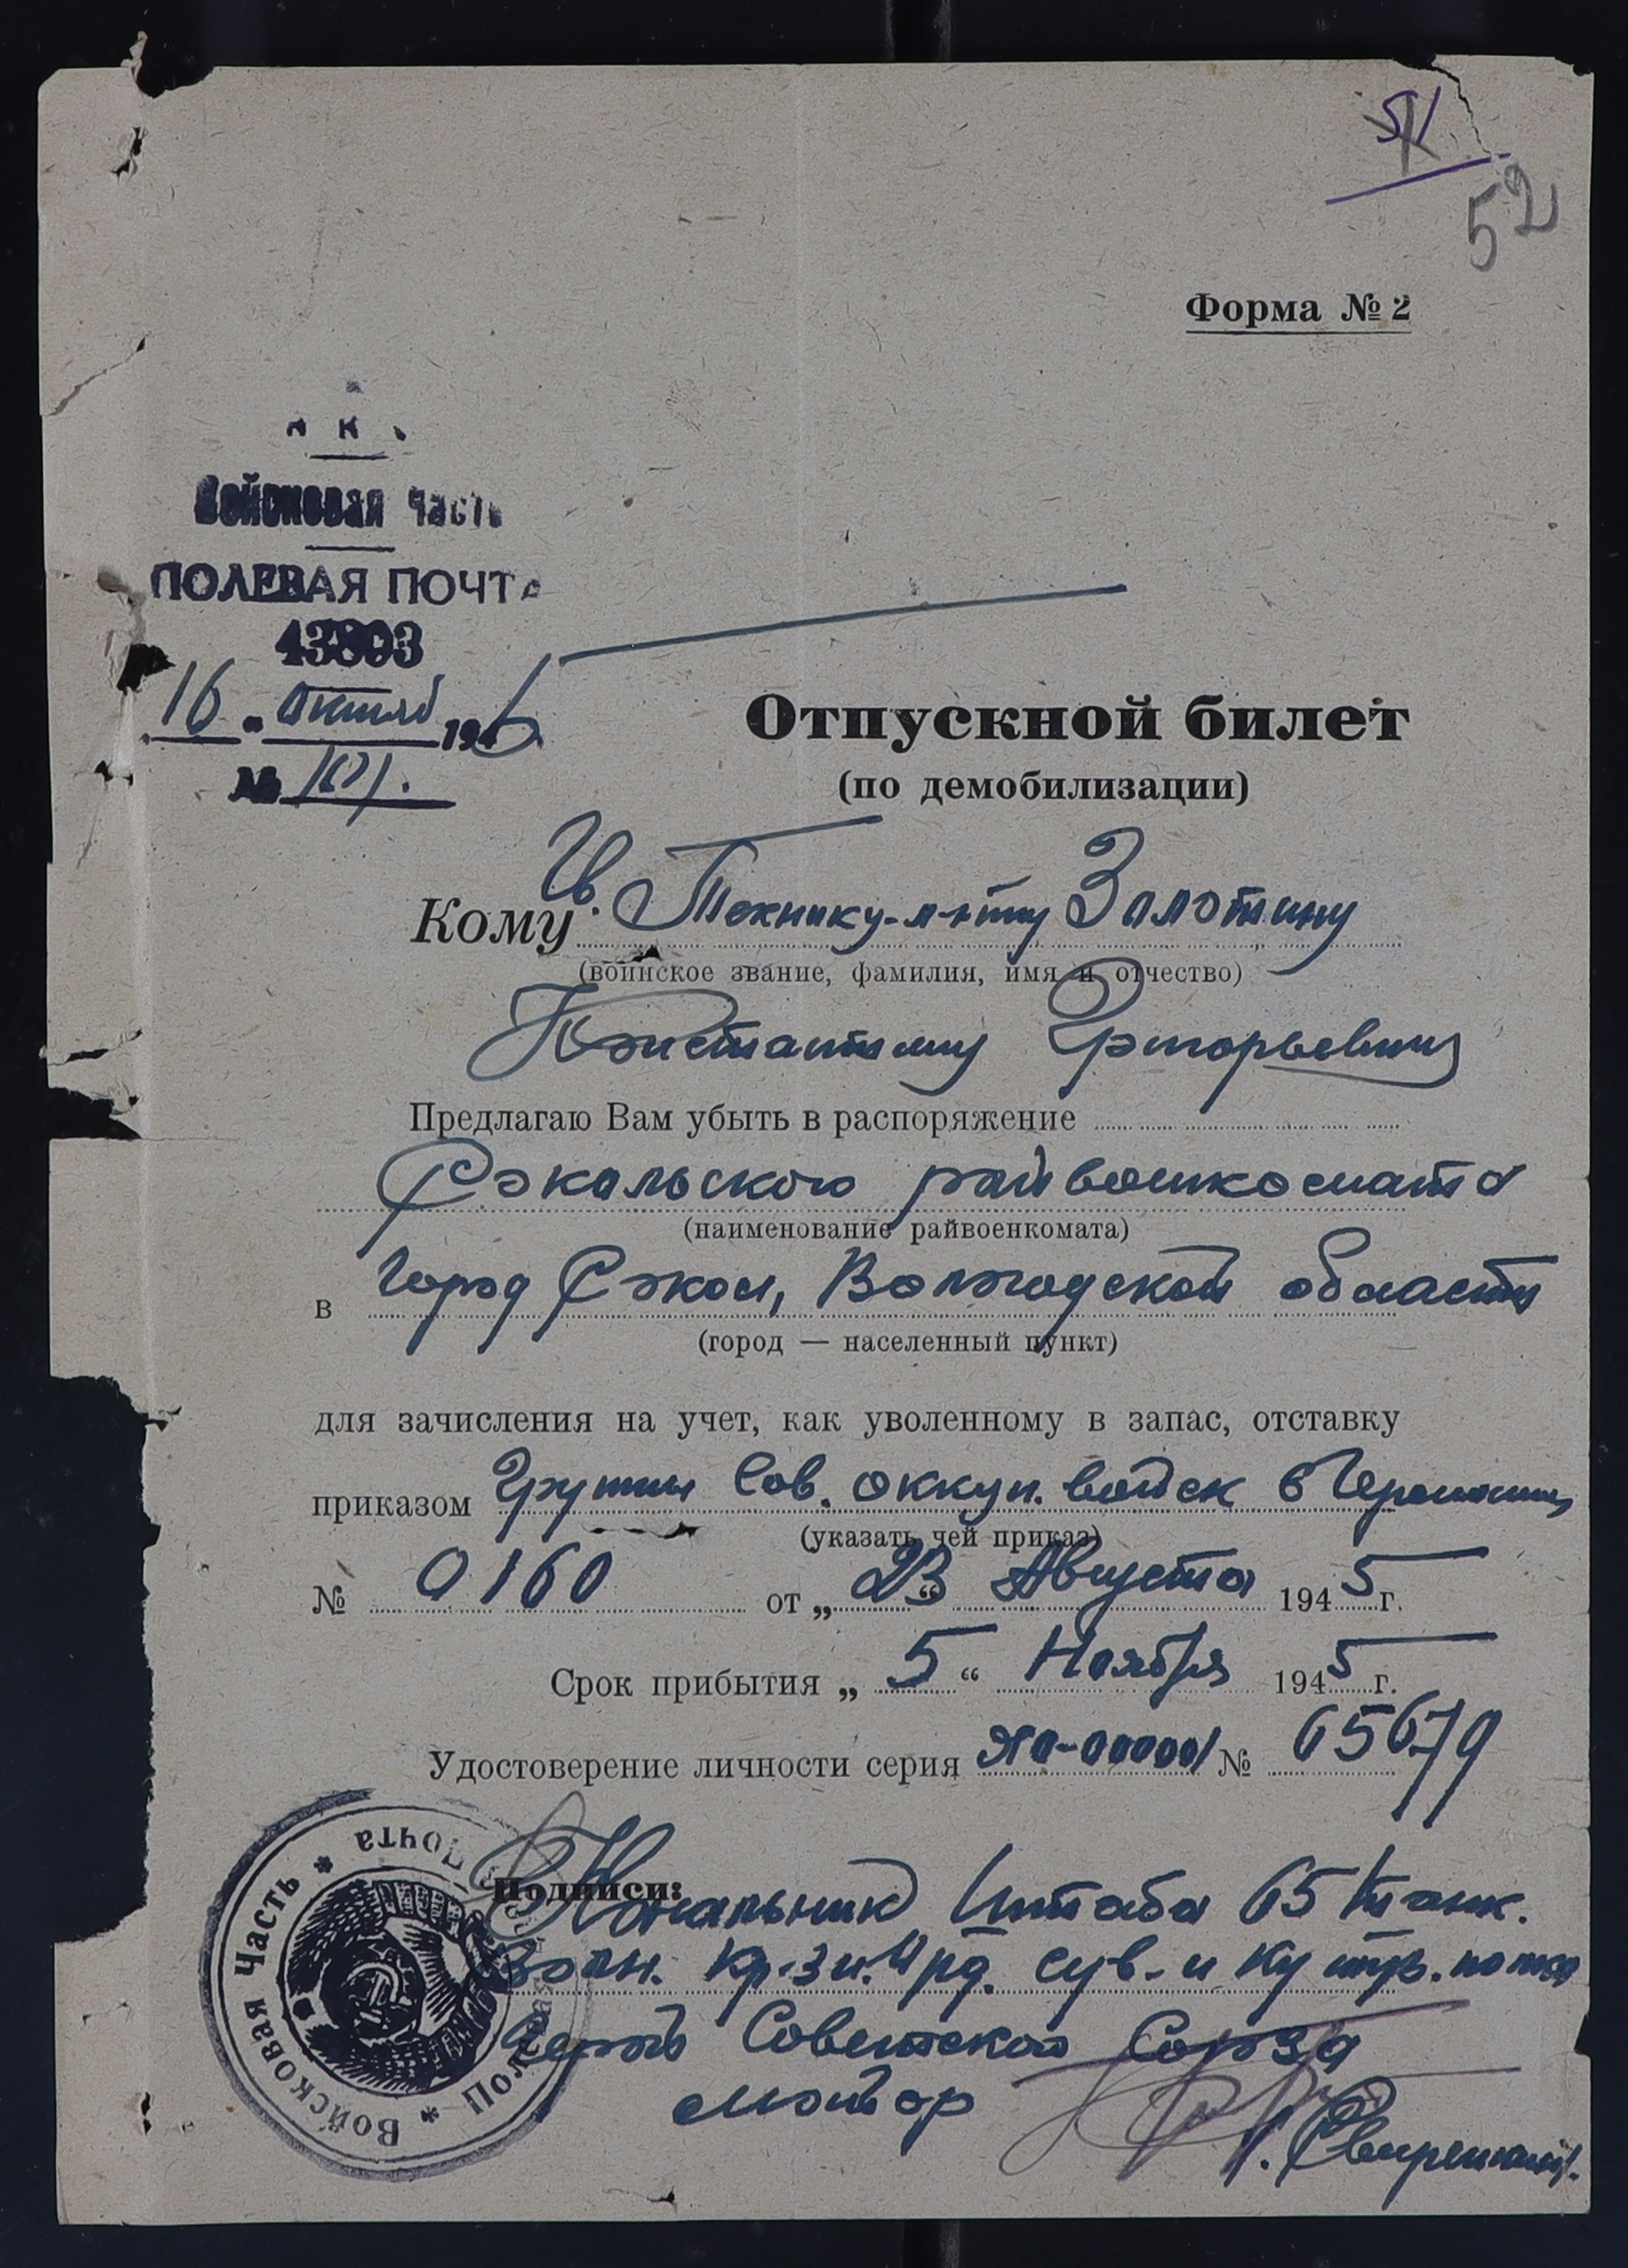 51
52
Форма № 2
Войсковая часть
ПОЛЕВАЯ ПОЧТА
43803
16 " октяб 1945
№
Отпускной билет
(по демобилизации)
Кому Гв. Технику-л-нту Золотину
(воинское звание, фамилия, имя и отчество)
Константину Григорьевичу
Предлагаю Вам убыть в распоряжение
Сокольского райвоенкомата
(наименование райвоенкомата)
в город Сокол, Вологодской области
(город — населенный пункт)
для зачисления на учет, как уволенному в запас, отставку
приказом Группы Сов. оккуп. войск в Германии
(указать чей приказ)
№ 0160 от „ 23 “ Августа 1945 г.
Срок прибытия „ 5 “ Ноября 1945 г.
Удостоверение личности серия ЯО-00000 № 65679
Подписи:
Начальник Штаба 65 танк.
Волн. Кр-зн. Орд. Сув. и Кутуз. полка
Герой Советского Союза
майор
Войсковая Часть * Полевая Почта *